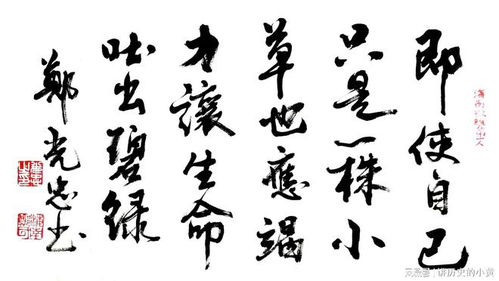 即使自己
只是一株小
草也應竭
力讓生命
吐出碧绿
鄭光忠书
讲历史的小黄